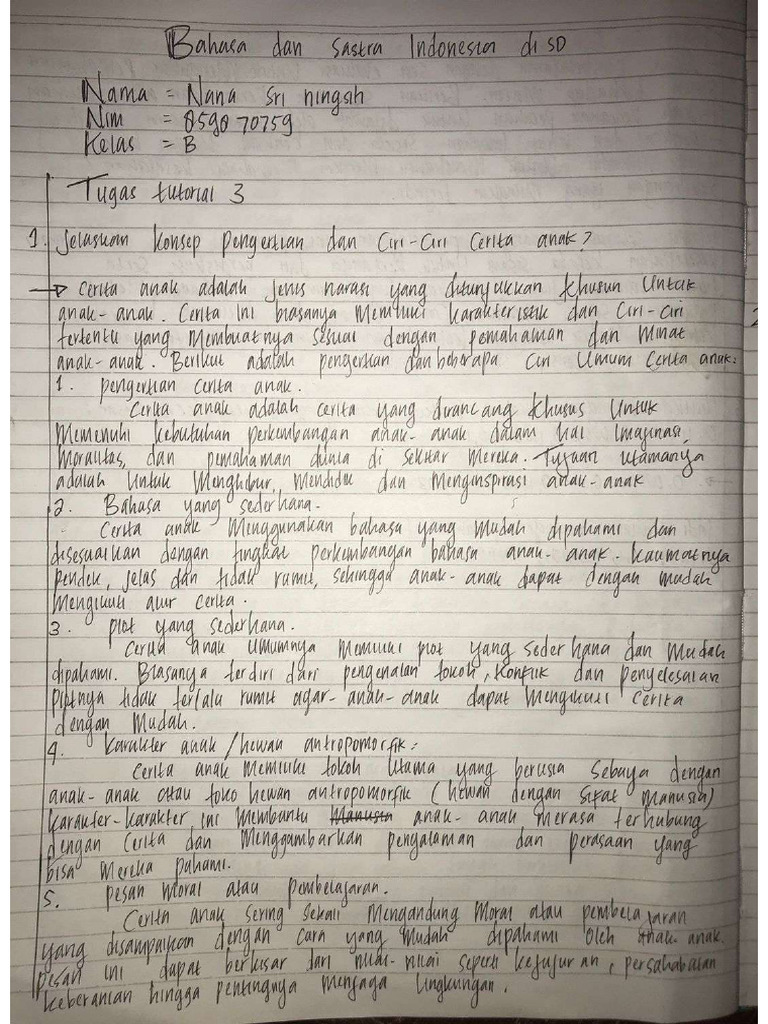 Bahasa dan Sastra Indonesia di SD
Nama = Nana Sri ningsih
Nim = 859870759
Kelas = B
Tugas tutorial 3
1. Jelaskan konsep pengertian dan Ciri-Ciri Cerita anak?
→ Cerita anak adalah jenis narasi yang ditunjukkan khusun Untuk
anak-anak. Cerita ini biasanya Memiliki karakteristik dan Ciri-ciri
tertentu yang Membuatnya sesuai dengan pemahaman dan Minat
anak-anak. Berikut adalah pengertian dan beberapa Ciri Umum Cerita anak:
1. pengertian cerita anak.
Cerita anak adalah cerita yang dirancang khusus Untuk
Memenuhi kebutuhan perkembangan anak-anak dalam hal Imajinasi,
Moralitas, dan pemahaman dunia di sekitar Mereka. Tujuan utamanya
adalah Untuk Menghibur, Mendidik dan Menginspirasi anak-anak
2. Bahasa yang sederhana.
Cerita anak Menggunakan bahasa yang Mudah dipahami dan
disesuaikan dengan tingkat perkembangan bahasa anak-anak. kalimatnya
pendek, jelas dan tidak rumit, sehingga anak-anak dapat dengan mudah
Mengikuti alur cerita.
3. plot yang sederhana.
Cerita anak Umumnya Memiliki plot yang sederhana dan Mudah
dipahami. Biasanya terdiri dari pengenalan tokoh, konflik dan penyelesaian
plotnya tidak terlalu rumit agar-anak-anak dapat Mengikuti cerita
dengan Mudah.
4. karakter anak / hewan antropomorfik:
Cerita anak Memiliki tokoh Utama yang berusia sebaya dengan
anak-anak atau toko hewan antropomorfik (hewan dengan sifat Manusia)
karakter-karakter ini Membantu Manusia anak-anak Merasa terhubung
dengan Cerita dan Menggambarkan pengalaman dan perasaan yang
bisa Mereka pahami.
5. pesan Moral atau pembelajaran.
Cerita anak sering sekali Mengandung Moral atau pembelajaran
yang disampaikan dengan cara yang Mudah dipahami oleh anak-anak.
pesan ini dapat berkisar dari nilai-nilai seperti kejujuran, persahabatan
keberanian hingga pentingnya menjaga lingkungan.